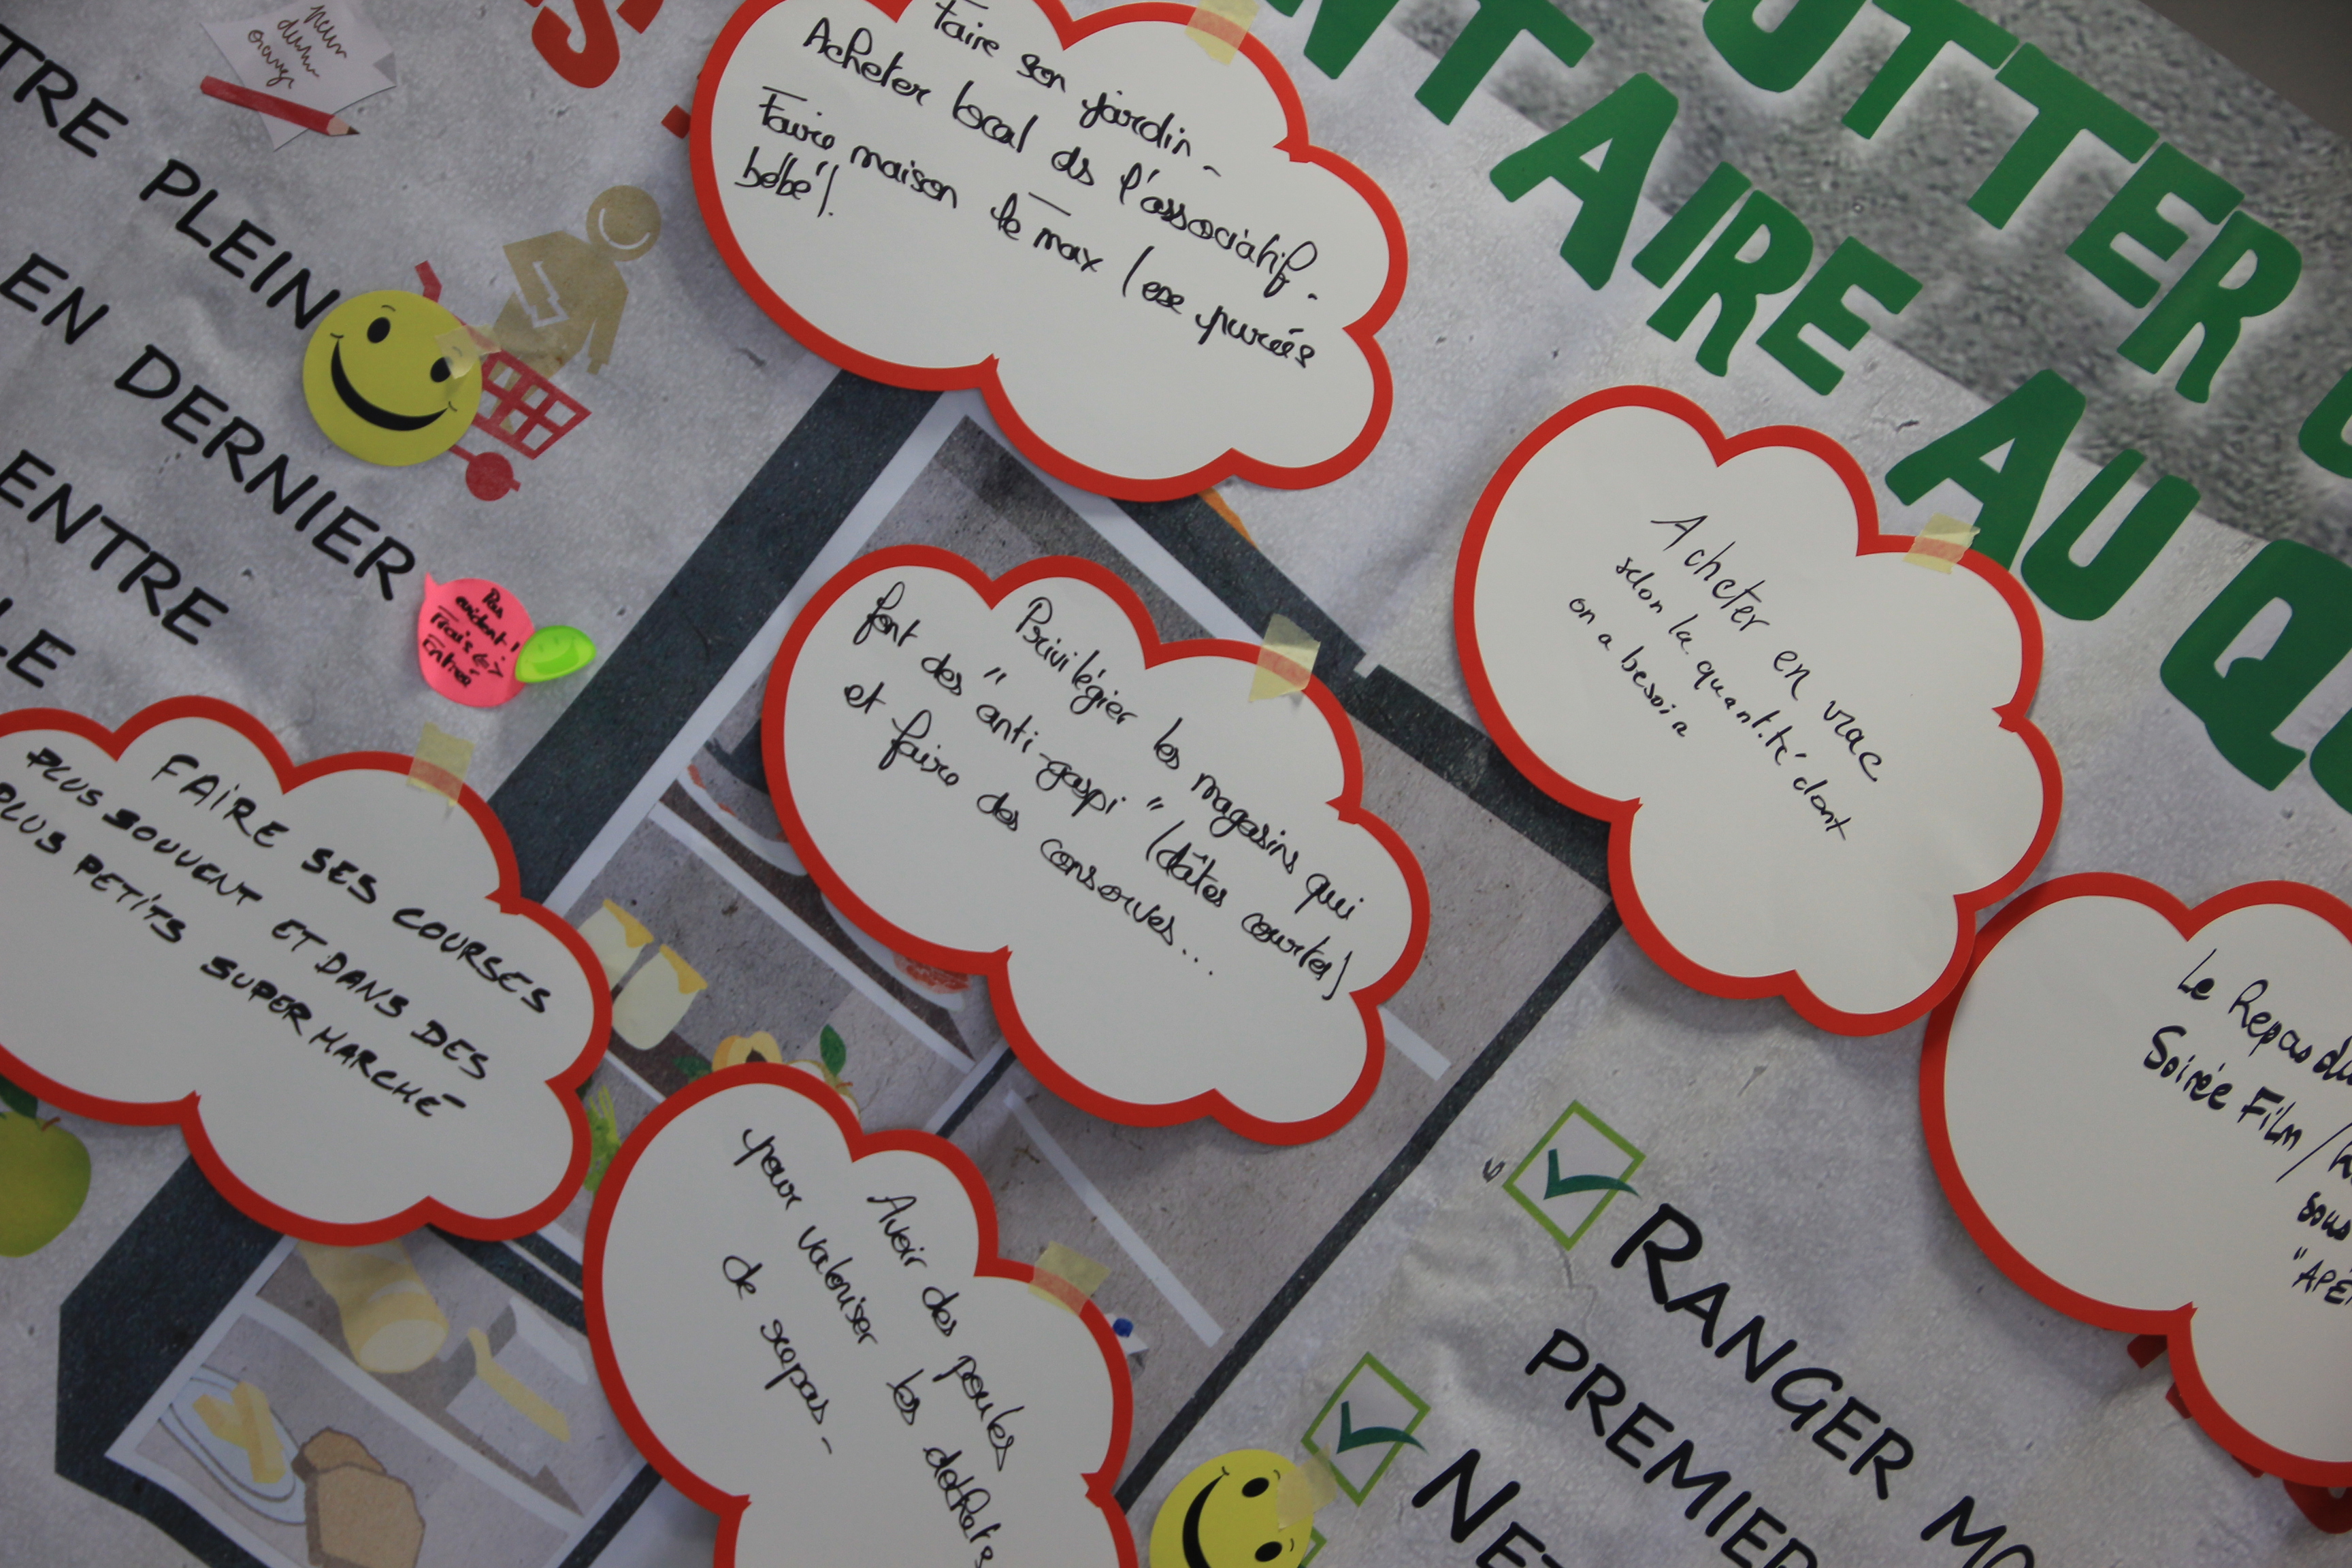 UTTER
NTAIRE AU QU
TRE PLEIN
EN DERNIER
ENTRE
LE
Pas
évident!
Frais <=>
Entrée
Faire son jardin -
Acheter local ds l'associatif -
Faire maison le max (ex purées
bébé)!
Acheter en vrac
selon la quantité dont
on a besoin
Privilégier les magasins qui
font des "anti-gaspi" (dates courtes)
et faire des conserves...
FAIRE SES COURSES
PLUS SOUVENT ET DANS DES
PLUS PETITS SUPER MARCHÉ
Avoir des poules
pour valoriser les déchets
de repas -
Le Repas du
Soirée Film /
sous
"APÉ
RANGER MO
PREMIER
NET